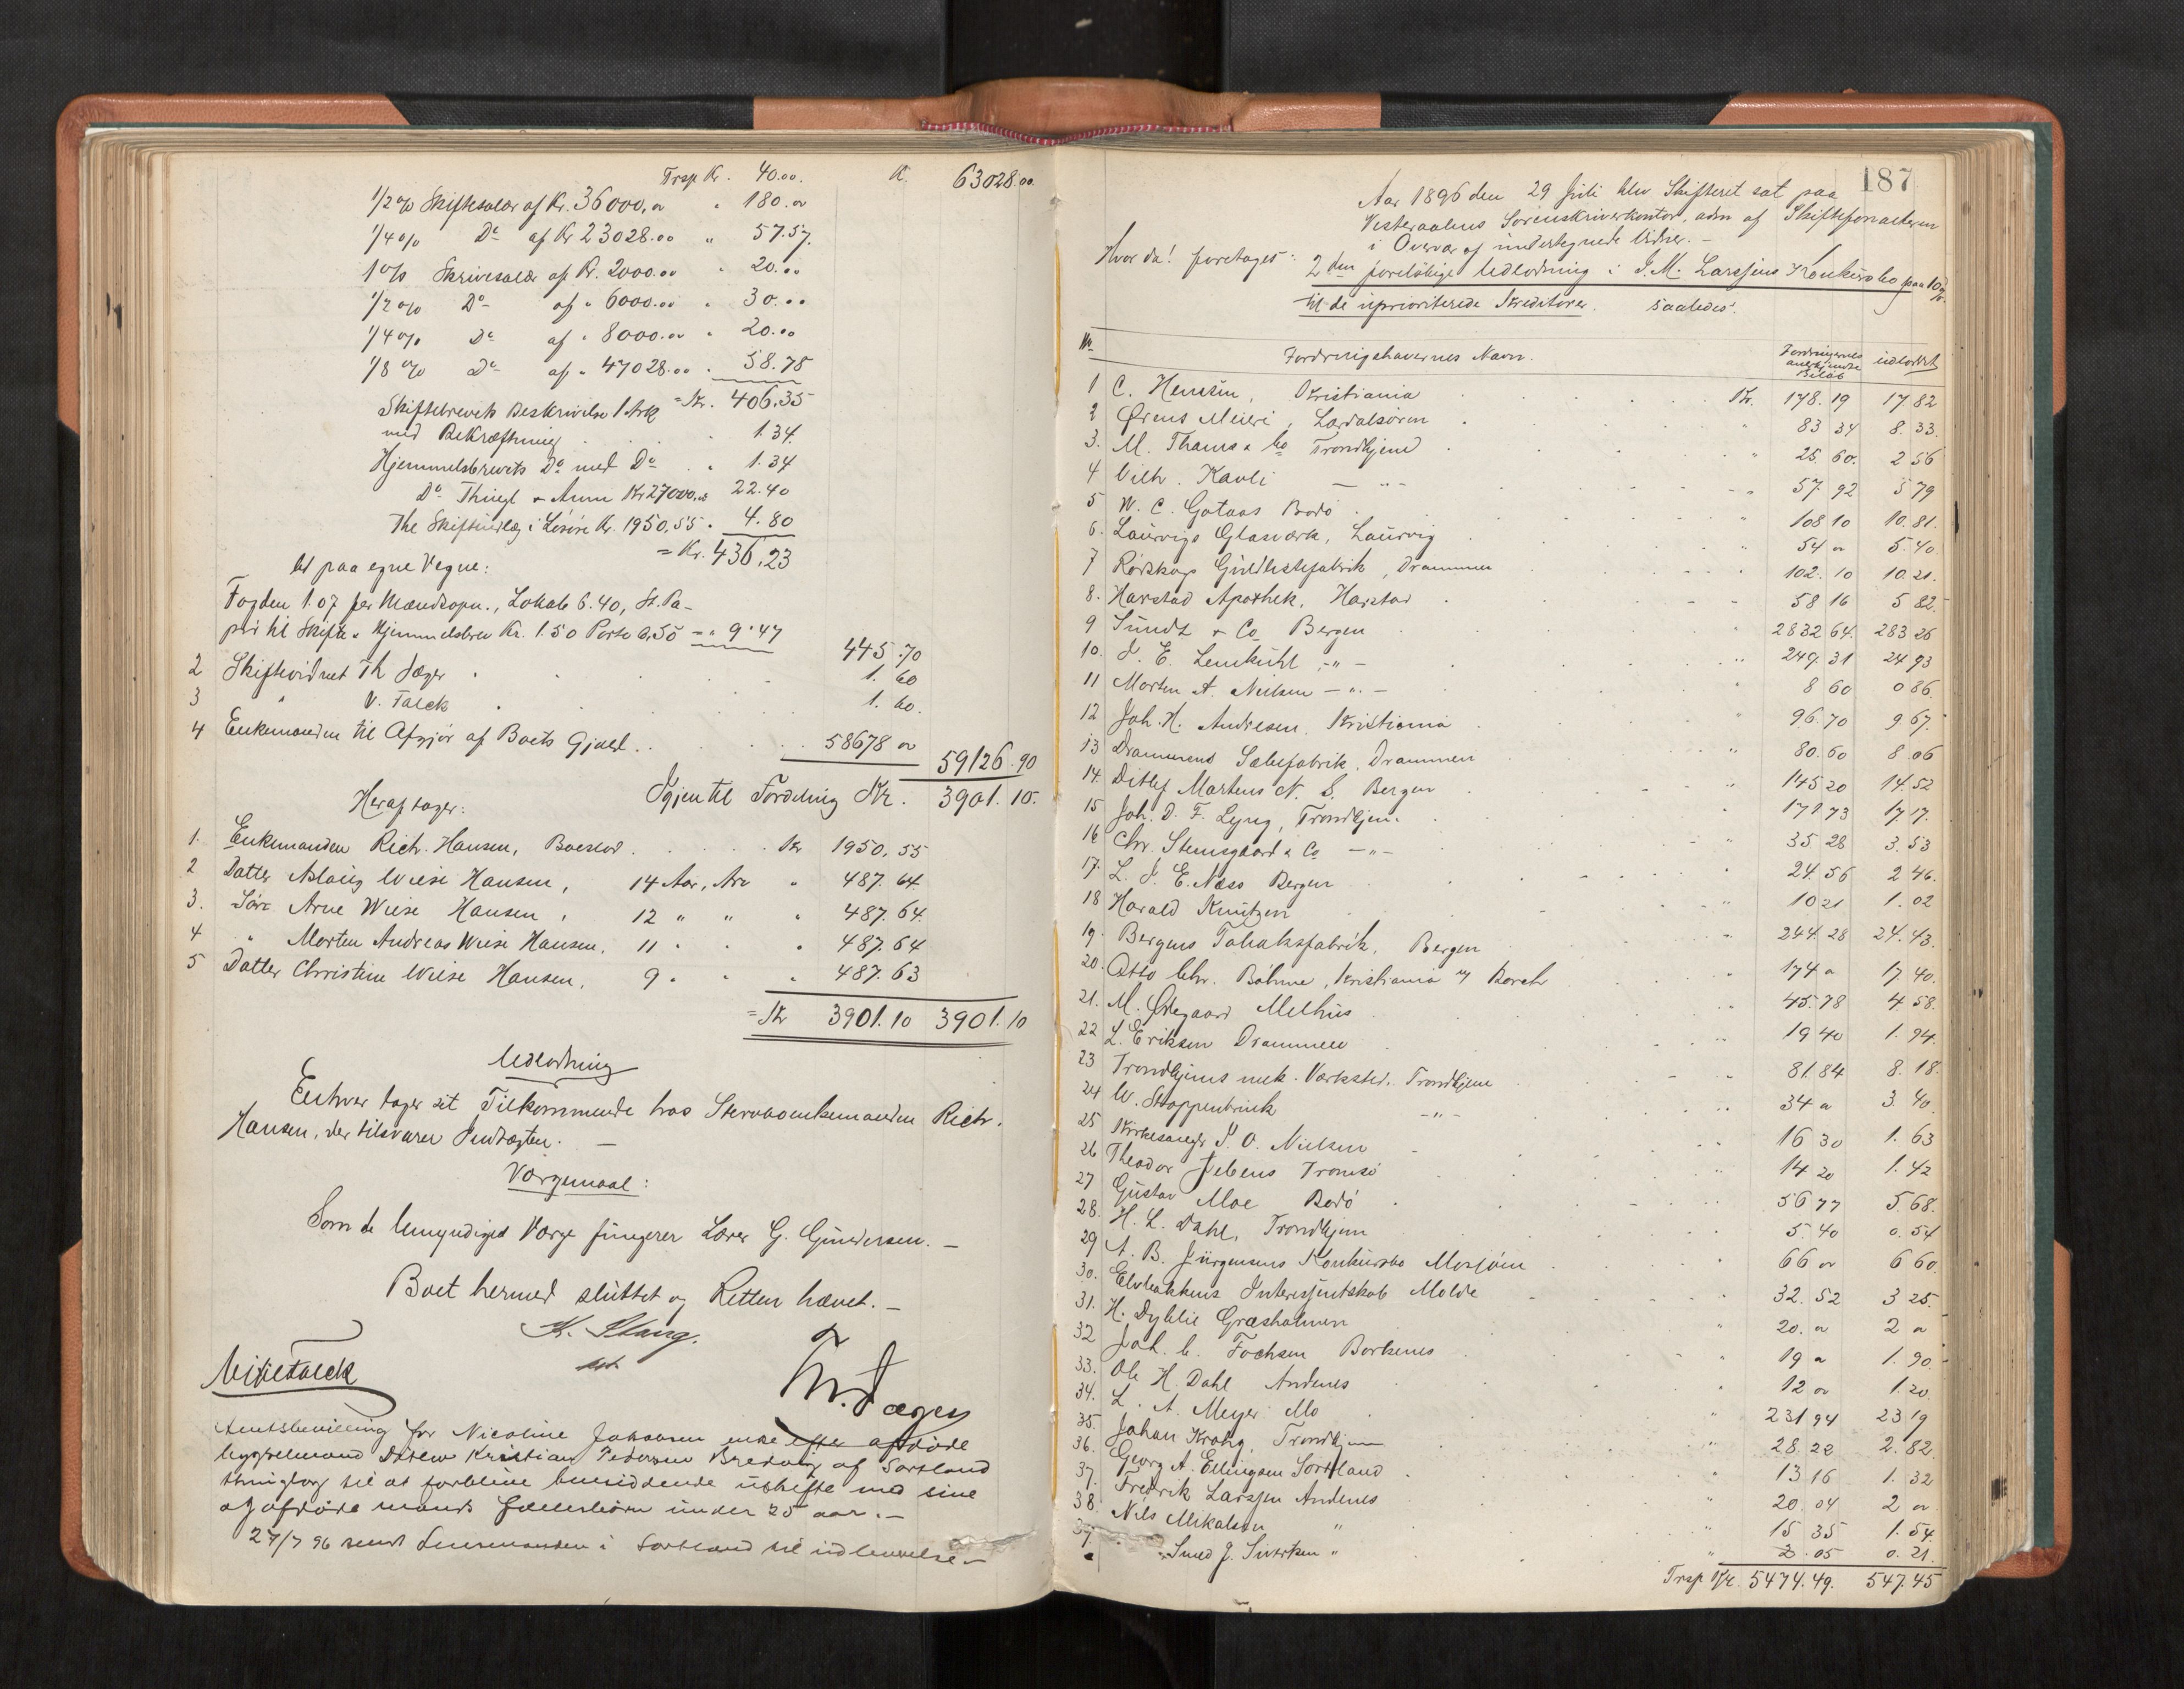 Trsp Kr. 40.00. K. 63028.00.
1/2 % Skiftesalær af Kr. 36000,00 " 180.00
1/4 % Do af Kr 23028.00 " 57.57.
1 % Skrivesalær af Kr. 2000.00 " 20.00
1/2 % Do af " 6000.00 " 30.00
1/4 % Do af " 8000.00 " 20.00
1/8 % Do af " 47028.00 " 58.78
= Kr. 406.35
Skiftebrevets Beskrivelse 1 Ark
med Bekræftning . . . 1.34
Hjemmelsbrevets Do med Do . " 1.34
Do Thingl & Anm Kr 27000.00 22.40
Thl Skifteudlæg i Løsøre Kr. 1950,55 . 4.80
= Kr. 436,23
At paa egne Vegne:
Fogden 1.07 for Mændsopn., Lokale 6.40, St. Pa-
pir til Skifte & Hjemmelsbrev Kr. 1.50 Porto 0,50 = " 9.47
445.70
2 Skiftevidnet Th Jæger . . . 1. 60
3 " V. Falck . . . 1. 60.
4 Enkemanden til Afgjør af Boets Gjæld . . . 58678 00
59126.90
Igjen til Fordeling Kr. 3901.10.
Heraf tager:
1. Enkemanden Rich. Hansen, Boeslod . . . Kr 1950,55
2 Datter Aslaug Wiese Hansen, 14 Aar, Arv " 487.64
3. Søn Arne Wiese Hansen, 12 " " " 487.64.
4 " Morten Andreas Wiese Hansen, 11 " " " 487.64
5 Datter Christine Wiese Hansen, 9 " " " 487.63
= Kr 3901.10 3901.10
Udlodning
Enhver tager sit Tilkommende hos Stervboenkemanden Rich.
Hansen, der tilsvarer Indtægten. —
Værgemaal:
Som de Umyndiges Værge fungerer Lærer G. Gundersen. —
Boet hermed sluttet og Retten hævet. —
K. Stang.
cst
Th. Jæger
Amtsbevilling for Nicoline Jakobsen enke efter afdøde
Ditlew Kristian Pedersen Bredvig af Sortland
thinglag til at forblive hensiddende i uskifte med sine
og afdøde mands fællesbørn under 25 aar. —
27/7 96 sendt Lensmanden i Sortland til udlevelse —
187
Aar 1896 den 29 Juli blev Skifteret sat paa
Vesteraalens Sorenskriverkontor, adm af Skifteforvalteren
i Overvær af undertegnede Vidner. —
Hvor da! foretages: 2den foreløbige Udlodning i J. M. Larssens Konkursbo paa 10 %
til de uprioriterede Kreditorer. saaledes:
No. Fordringshavernes Navn. Fordringernes anerkjendte Beløb udloddet
1 C. Hennum, Kristiania . . . Kr. 178.19 17 82
2 Ørens Meieri, Lærdalsøren . . . " 83 34 8.33.
3. M. Thams & Co Trondhjem . . . " 25 60. 2 56
4 Vilh. Kavli — " — . . . " 57.92 5 79
5 W. C. Gotaas Bodø . . . " 108 10 10.81.
6. Laurvigs Glasværk, Laurvig . . . " 54 00 5.40.
7 Rødskogs Guldlistefabrik, Drammen . . . 102.10 10.21.
8. Harstad Apothek, Harstad . . . 58 16 5 82.
9 Sundt & Co Bergen . . . " 2832 64. 283 26
10. J. E. Lemkühl — " — . . . " 249.31 24 93
11 Morten A. Nielsen — " — . . . " 8 60 0 86.
12 Joh. H. Andresen, Kristiania . . . " 96.70 9.67.
13 Drammens Sæbefabrik, Drammen . . . " 80.60 8.06
14. Ditlef Martens N. S. Bergen . . . " 145 20 14.52
15 Joh. D. F. Lyng, Trondhjem . . . 171.73 17.17.
16 Chr. Stensgaard & Co — " — . . . " 35 28 3.53
17. L. J. E. Næss Bergen . . . 24.56 2 46.
18 Harald Knutzen . . . " 10 21 1.02
19. Bergens Tobaksfabrik, Bergen . . . 244.28 24.43.
20. Otto Chr. Bøhme, Kristiania v/ Borch . . . " 174 00 17.40.
21. M. Ødegaard Melhus . . . " 45.78 4.58.
22 L. Eriksen Drammen . . . " 19 40 1.94.
23 Trondhjems mek. Værksted. Trondhjem . . . 81.84 8.18.
24 W. Stoppenbrink — " — . . . " 34 00 3.40
25 Kirkesanger P. O. Nielsen . . . " 16 30 1.63
26 Theodor Jebens Tromsø . . . " 14 20 1.42
27 Gustav Moe Bodø . . . 56 77 5.68.
28. H. L. Dahl, Trondhjem . . . 5.40 0.54
29 A. B. Jürgensens Konkursbo Mosjøen . . . " 66 00 6 60.
30. Elvebakkens Interesentskab Molde . . . " 32.52 3 25.
31. H. Dyblie Græsholmen . . . " 20.00 2 00
32 Joh. C. Fochsen Borkenes . . . " 19 00 1.90.
33. Ole H. Dahl Andenes . . . " 12 00 1.20.
34. L. A. Meyer Mo . . . " 231 94 23 19
35. Johan Krohg, Trondhjem . . . " 28.22 2.82.
36. Georg A. Ellingsen Sortland . . . " 13 16 1.32
37. Fredrik Larssen Andenes . . . " 20.04 2 00
38. Nils Mikalsen " . . . " 15 35 1.54.
39 Smed J. Sivertsen " . . . " 2.05 0.21.
Trsp Kr. 5474.49. 547.45